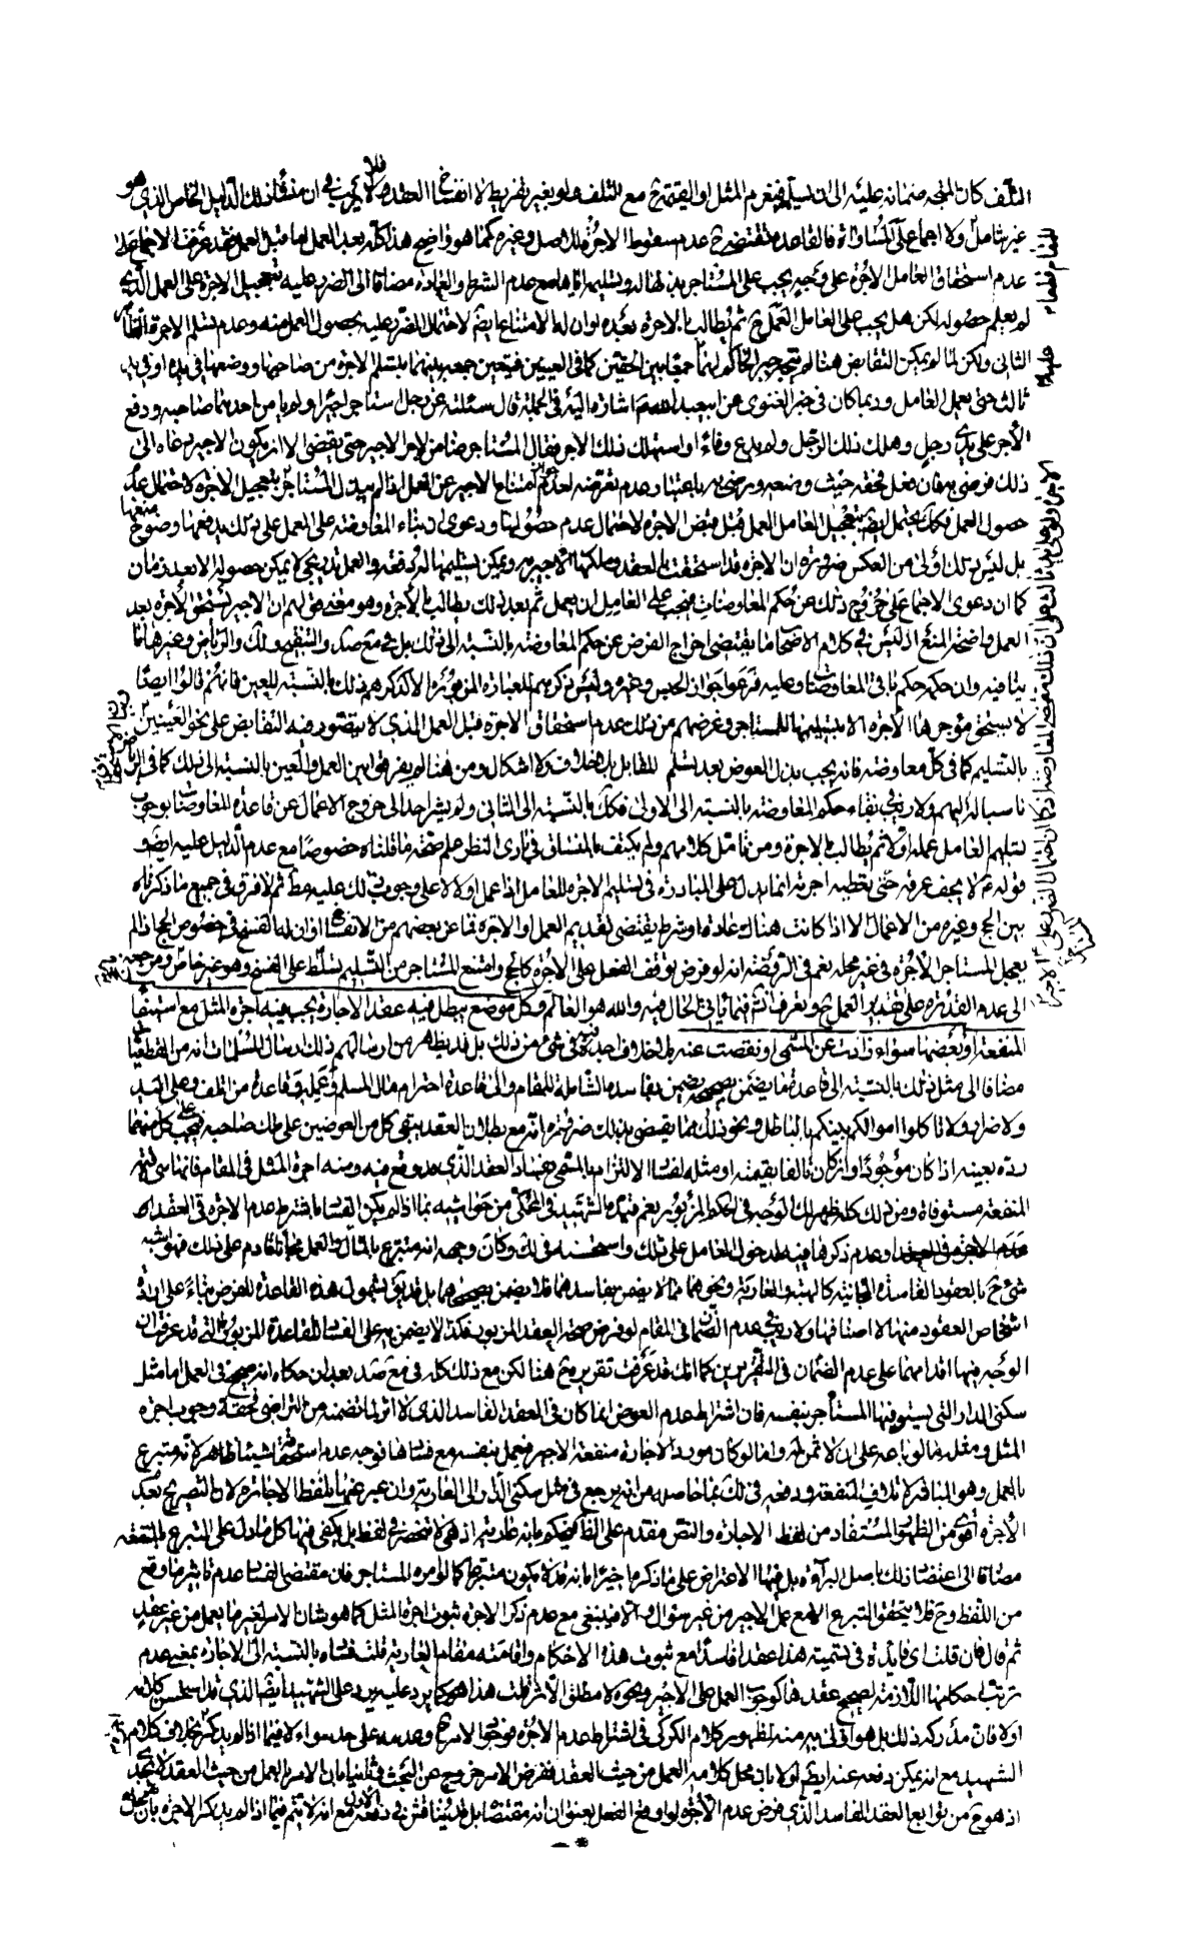 التلف كان المتجه ضمانه عليه الى ان يسلمه فيغرم المثل او القيمة ح مع التلف ولو بغير تفريط لا انفساخ العقد
غير شامل ولا اجماع على المساواة فالقاعدة تقتضي ح عدم سقوط الاجرة كما هو واضح هذا كله بعد العمل اما قبل العمل فقد عرفت الاجماع على
عدم استحقاق العامل الاجرة على وجه يجب على المستاجر بذلها له وتسليمه اياها مع عدم الشرط والعادة مضافا الى الضرر عليه بتعجيل الاجرة على العمل الذي
لم يعلم حصوله لكن هل يجب على العامل العمل ح ثم يطالب بالاجرة بعده او ان له الامتناع ايضا لاحتمال الضرر عليه بحصول العمل منه وعدم تسلم الاجرة
الثاني ولكن لما لم يمكن التقابض هنا لم يتجه جبر الحاكم لهما جمعا بين الحقين كما في العينين فيتعين جمعه بينهما بتسلم الاجرة من صاحبها ووضعها في يده او في يد
ثالث حتى يعمل العامل وربما كان في خبر الغنوي عن ابيعبد الله اشارة اليه في الجملة قال سئلته عن رجل استاجر اجيرا ولم يامن احدهما صاحبه ووضع
الأجر على يدي رجل وهلك ذلك الرجل ولم يدع وفاء او استهلك ذلك الاجر فقال المستاجر ضامن لاجر الاجير حتى يقضى الا ان يكون الاجير دعاه الى
ذلك فرضي به فان فعل فحقه حيث وضعه ورضي به
حصول العمل فكك يحتمل ايضا تعجيل العامل العمل قبل قبض الاجرة لاحتمال عدم حصولها ودعوى ان بناء المعاوضة على العمل على ذلك يدفعها وضوح منعها
بل ليس ذلك اولى من العكس ضرورة ان الاجرة قد استحقت بالعقد وملكها الاجير به ويمكن تسليمها له دفعة والعمل تدريجي لا يمكن حصوله الا بعد زمان
كما ان دعوى الاجماع على خروج ذلك عن حكم المعاوضات فيجب على العامل ان يعمل ثم بعد ذلك يطالب بالأجرة وهو معنى قولهم ان الاجير يستحق الاجرة بعد
العمل واضحة المنع اذ ليس في كلام الاصحاب ما يقتضي اخراج الفرض عن حكم المعاوضة بالنسبة الى ذلك بل في مع صد والتنقيح ولك والرياض وغيرها ما
ينافيه وان حكمه حكم باقي المعاوضات وعليه فرعوا جواز الحبس وغيره وليس ذكرهم للعبارة المزبورة الا كذكرهم ذلك بالنسبة للعين فانهم قالوا ايضا
لا يستحق موجرها الأجرة الا بتسليمها للمستاجر وغرضهم من ذلك عدم استحقاق الاجرة قبل العمل الذي لا يتصور فيه التقابض على نحو العينين
بالتسليم كما في كل معاوضة فانه يجب بذل العوض بعد تسلم المقابل بلا خلاف ولا اشكال ومن هنا لم يفرق بين العمل والعين بالنسبة الى ذلك كما في
ناسبا له اليهم ولا ريب في بقاء حكم المعاوضة بالنسبة الى الاولى فكك بالنسبة الى الثاني ولم يشر احد الى خروج الاعمال عن قاعدة المعاوضات بوجوب
تسليم العامل عمله اولا ثم يطالب بالاجرة ومن تامل كلامهم ولم يكتف بالمنساق في بادى النظر علم صحة ما قلناه خصوصا مع عدم الدليل عليه ايضا و
قوله ع لا يجف عرقه حتى تعطيه اجرته انما يدل على المبادرة في تسليم الاجرة للعامل اذا عمل اولا لا على وجوب ذلك عليه مط ثم لا فرق في جميع ما ذكرناه
بين الحج وغيره من الاعمال الا اذا كانت هناك عادة او شرط يقتضي تقديم العمل او الاجرة فما عن بعضهم من الانفساخ او ان له الفسخ في خصوص الحج اذا لم
يعجل المستاجر الاجرة في غير محله نعم في الروضة انه لو فرض توقف الفعل على الاجرة كالحج وامتنع المستاجر من التسليم تسلط على الفسخ وهو غير خاص ومرجعه
الى عدم القدرة على العمل ح وتعرف انش فيما ياتي الحال فيه والله هو العالم وكل موضع يبطل فيه عقد الاجارة يجب فيه اجرة المثل مع استيفاء
المنفعة او بعضها سواء زادت عن المسمى او نقصت عنه بلا خلاف اجده في شئ من ذلك بل قد يظهر من ارسالهم ذلك ارسال المسلمات انه من القطعيات
مضافا الى مثل ذلك بالنسبة الى قاعدة ما يضمن بصحيحه يضمن بفاسده الشاملة للمقام والى قاعدة احترام مال المسلم وعمله وقاعدة من اتلف وعلى اليد
ولا ضرار ولا تاكلوا اموالكم بينكم بالباطل ونحو ذلك مما يقضى بذلك ضرورة انه مع بطلان العقد يبقى كل من العوضين على ملك صاحبه فيجب على كل منهما
رده بعينه اذا كان موجودا وان كان تالفا بقيمته او مثله لفساد الالتزام بالمسمى بفساد العقد الذي قد وقع فيه ومنه اجرة المثل في المقام فانها هي قيمة
المنفعة مستوفاة ومن ذلك كله ظهر لك الوجه في الحكم المزبور نعم قيده الشهيد في المحكي من حواشيه بما اذا لم يكن الفساد باشتراط عدم الاجرة في العقد او
وعدم ذكرها فيه لدخول العامل على ذلك واستحسنه في لك وكان وجهه انه متبرع بالمال والعمل مجانا قادم على ذلك فهو اشبه
شئ ح بالعقود الفاسدة المجانية كالهبة والعارية ونحوهما مما لا يضمن بفاسدهما كما لا يضمن بصحيحهما بل قد يدعى شمول هذه القاعدة للفرض بناء على ارادة
اشخاص العقود منها لا اصنافها ولا ريب في عدم الضمان في المقام لو فرض صحة العقد المزبور فكذا لا يضمن به على الفساد للقاعدة المزبورة التي قد عرفت ان
الوجه فيها اقدامهما على عدم الضمان في التقريرين كما انك قد عرفت تقريره هنا لكن مع ذلك كله في مع صد بعد ان حكاه انه صحيح في العمل اما مثل
سكنى الدار التي يستوفيها المستأجر بنفسه فان اشتراط عدم العوض انما كان في العقد الفاسد الذي لا اثر لما تضمنه من التراضي فحقه وجوب اجرة
المثل ومثله ما لو باعه على ان لا ثمن له واما لو كان مورد الاجارة منفعة الاجير فعمل بنفسه مع فسادها توجه عدم استحقاقه شيئا ظاهرا لانه متبرع
بالعمل وهو المباشر لاتلاف المنفعة ودفعه في لك بما حاصله من انه يرجع في مثل سكنى الدار الى العارية وان عبر عنها بلفظ الاجارة لان التصريح بعدم
الأجرة اقوى من الظهور المستفاد من لفظ الاجارة والنص مقدم على الظاهر فيحكم بانه عارية اذ هي لا تنحصر في لفظ بل يكفى فيها كل ما دل على التبرع بالمنفعة
مضافا الى اعتضاد ذلك باصل البراءة بل فيها الاعتراض على ما ذكره اخيرا بانه قد لا يكون متبرعا كما لو امره المستاجر فان مقتضى الفساد عدم تاثير ما وقع
من اللفظ وح فلا يتحقق التبرع الا مع عمل الاجير من غير سؤال والا فينبغي مع عدم ذكر الاجرة ثبوت اجرة المثل كما هو شان الامر لغيره بعمل من غير عقد
ثم قال فان قلت اي فايدة في تسميته هذا عقدا فاسدا مع ثبوت هذه الاحكام واقامته مقام العارية قلت فساده بالنسبة الى الاجارة بمعنى عدم
ترتب احكامها اللازمة لصحيح عقدها كوجوب العمل على الاجير ونحوه لا مطلق الاثر قلت هذا هو كما يرد عليه يرد على الشهيد ايضا الذي قد استحسن كلامه
اولا فان مدركه ذلك بل هو اولى به منه لظهور كلام الكركي في اشتراط عدم الاجرة فوجود الامر ح وعدمه على حد سواء لا فيما اذا لم يذكر بخلاف كلام
الشهيد مع انه يمكن دفعه عنه ايضا اولا بان محل كلامه العمل من حيث العقد ففرض الامر خروج عن البحث وثانيا بان الامر بالعمل من حيث العقد لا يجدي
اذ هو ح من توابع العقد الفاسد الذي فرض عدم الاجرة او وقع الفعل بعنوان انه مقتضاه بل قد يناقش في دفعه الاول مع انه لا يتم فيما اذا لم يذكر الاجرة بان